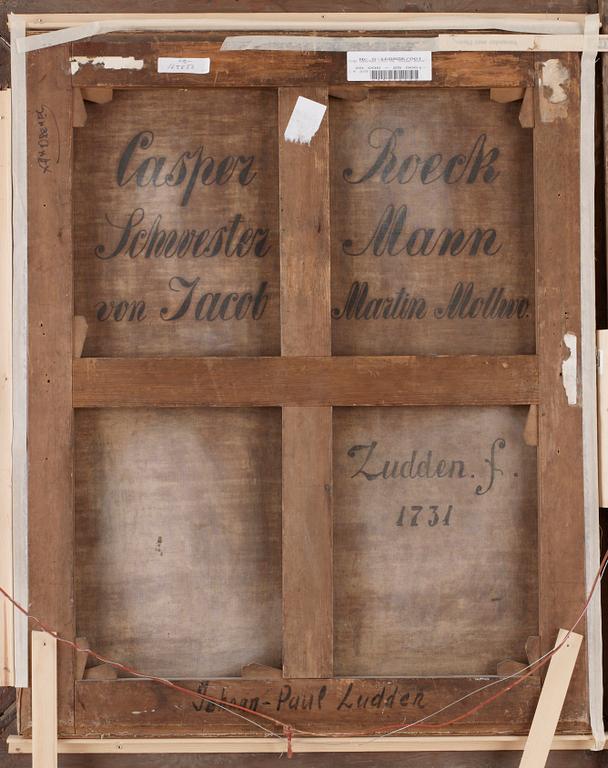 Casper Roeck
Schwester Mann
von Jacob Martin Mollwo.
Ludden. f.
1731
Johann-Paul Ludden